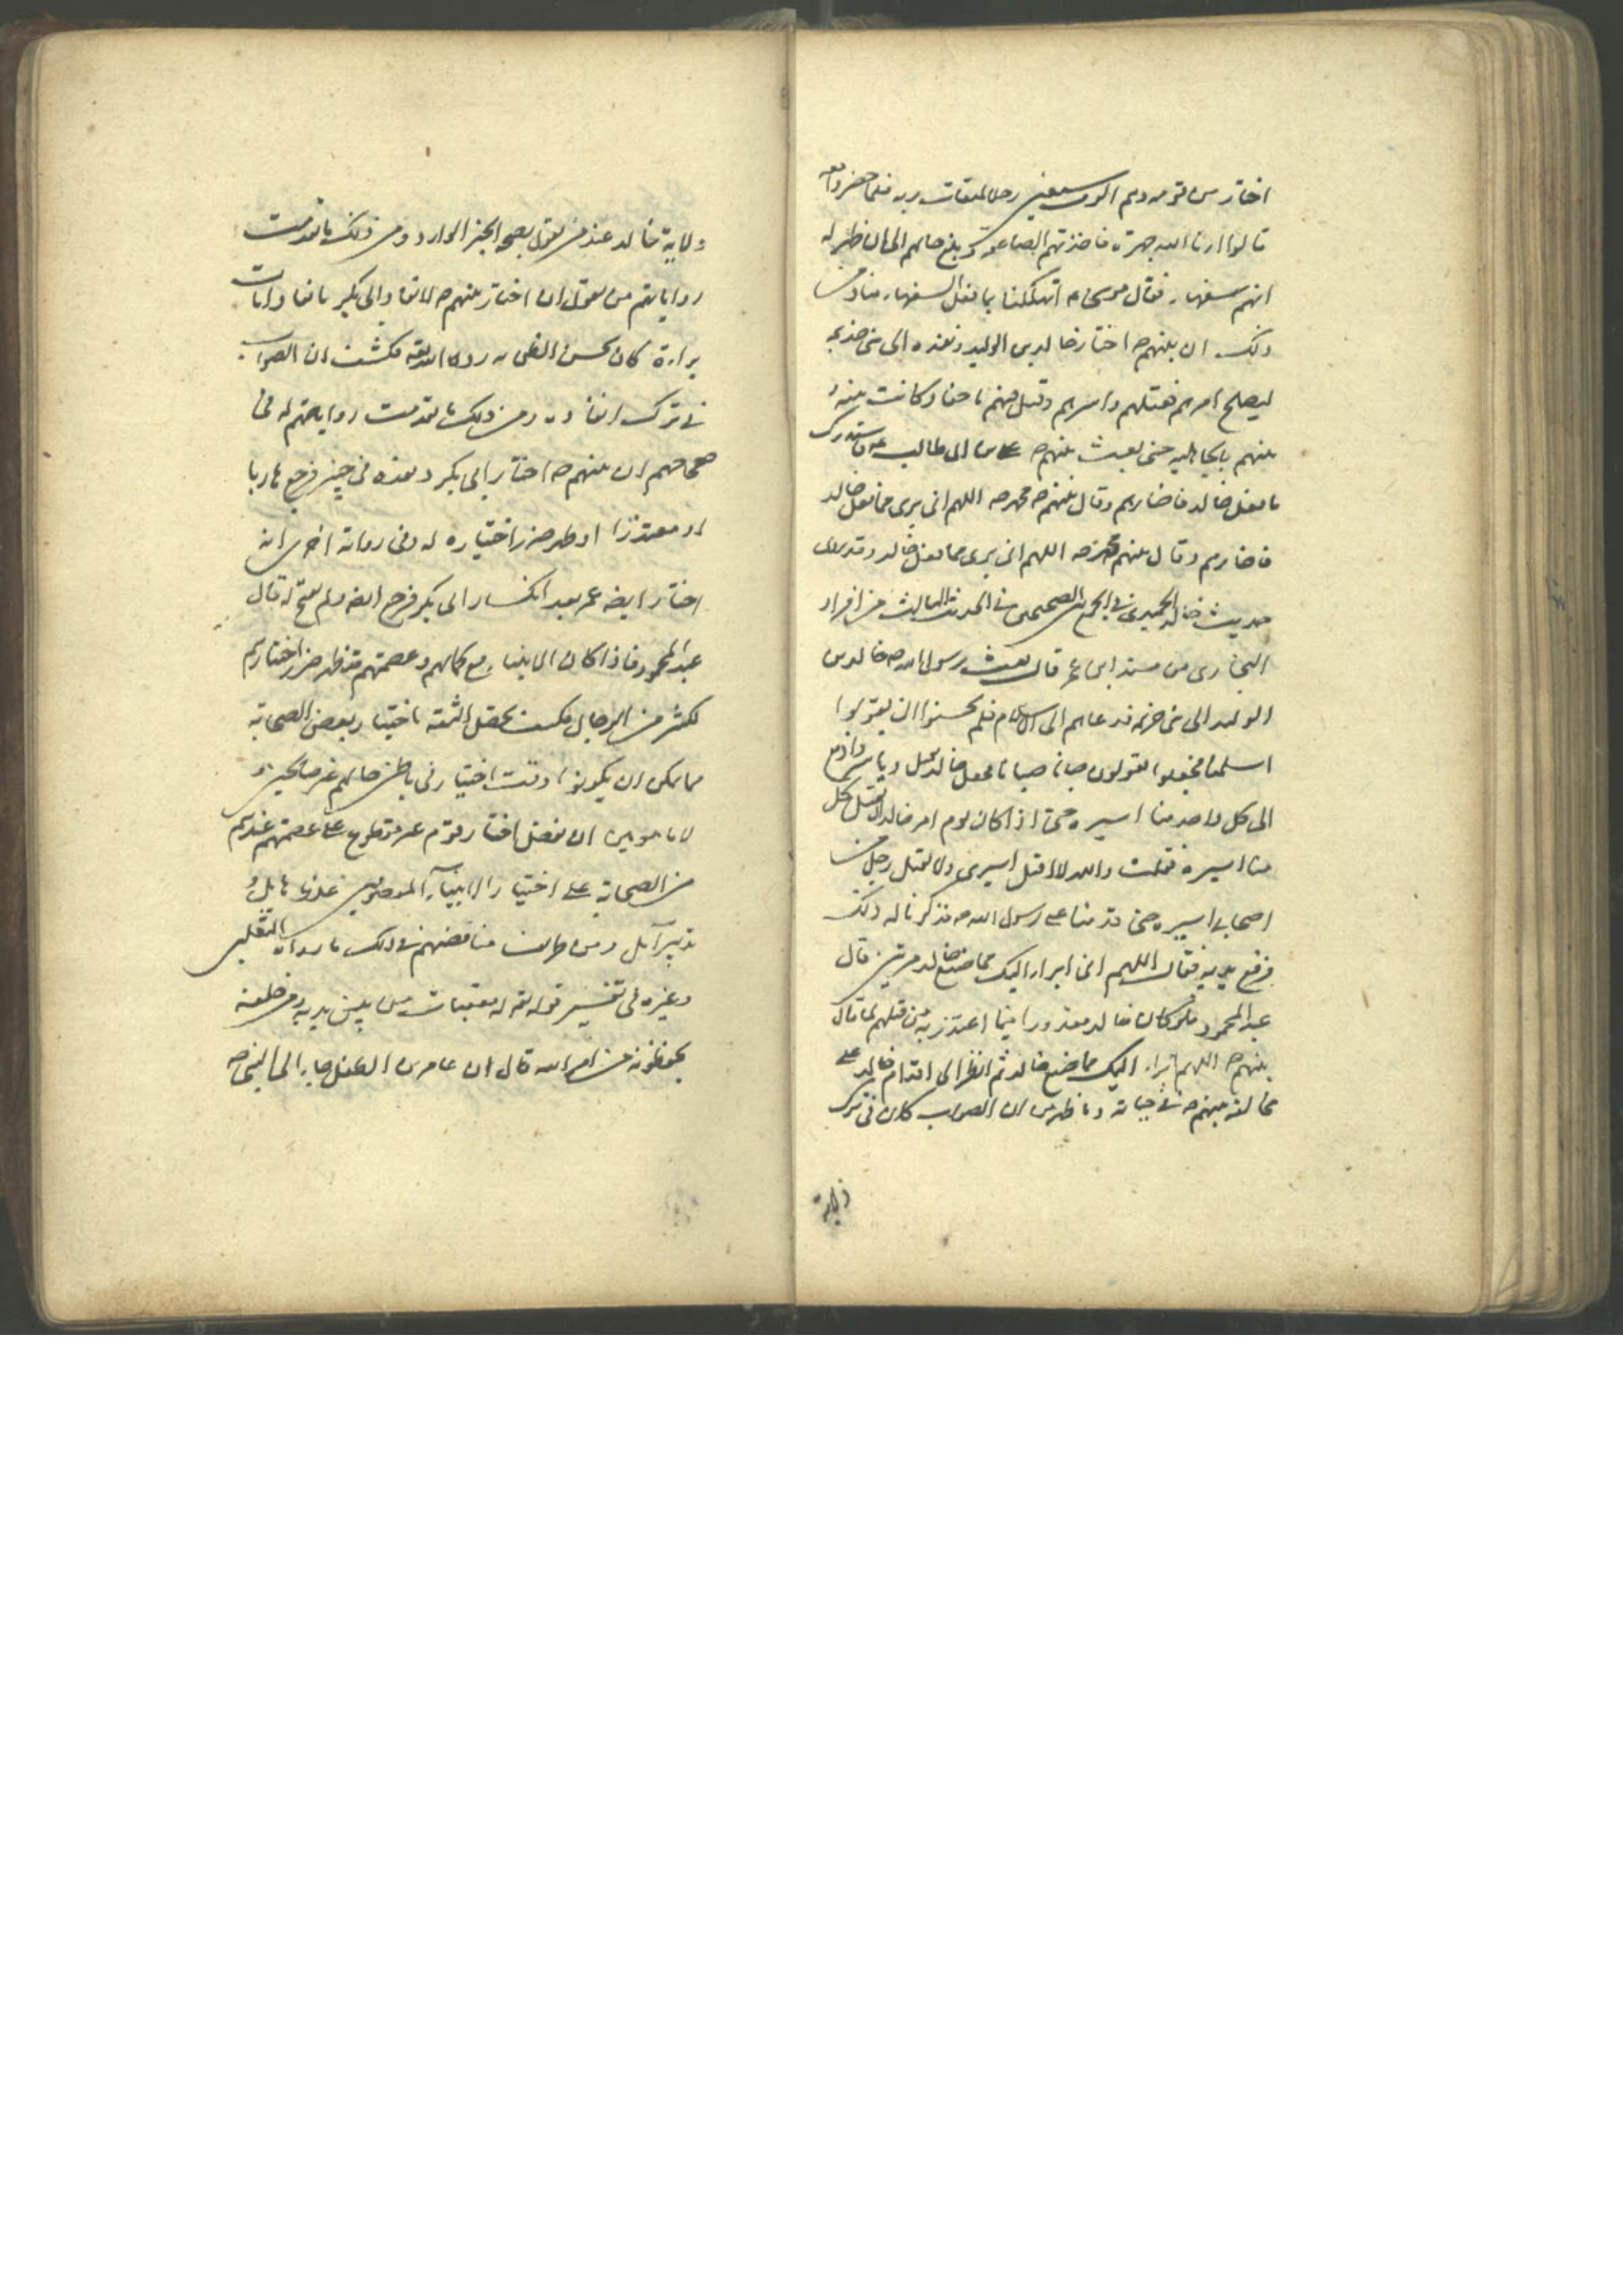 اختار من قومه وهم الوف سبعين رجلا لميقات ربه فلما حضروا معه
قالوا ارنا الله جهرة فاخذتهم الصاعقة وبلغ حالهم الى ان ظهر له
انهم سفهاء فقال موسى ع اتهلكنا بما فعل السفهاء منا ومن
ذلك ان نبيهم ص اختار خالد بن الوليد ونفذه الى بنى جذيمة
ليصلح امرهم فقتلهم واسرهم وقتل منهم ناحقا وكانت بينه و
بينهم بالجاهلية حتى بعث نبيهم ص على بن ابى طالب ع فاستدرك
ما فعل خالد فاضارهم وقال نبيهم ص محمد ص اللهم انى برى مما فعل خالد
فاضارهم وقال نبيهم محمد ص اللهم انى برى مما فعل خالد وقد روى
حديث خالد الحميدى فى الجمع بين الصحيحين فى الحديث الثالث من افراد
البخارى من مسند ابن عمر قال بعث رسول الله ص خالد بن
الوليد الى بنى جذيمة فدعاهم الى الاسلام فلم يحسنوا ان يقولوا
اسلمنا فجعلوا يقولون صبانا صبانا فجعل خالد يقتل وياسر ودفع
الى كل واحد منا اسيره حتى اذا كان يوم امر خالد ان يقتل كل
منا اسيره فقلت والله لا اقتل اسيرى ولا يقتل رجل من
اصحابى اسيره حتى قدمنا على رسول الله ص فذكرنا له ذلك
فرفع يديه فقال اللهم انى ابرا اليك مما صنع خالد مرتين قال
عبد المحمود فلو كان خالد معذورا فيما اعتذر به من قتلهم لما قال
نبيهم ص اللهم ابراء اليك مما صنع خالد ثم انظر الى اقدام خالد على
مخالفة نبيهم ص فى حياته وما ظهر من ان الصواب كان فى ترك
ولاية
ولاية خالد عند من يقول بصحة الخبر الوارد ومن ذلك ما تقدمت
رواياتهم من يقول ان اختار نبيهم ص لانفاد ابى بكر بانفاذ ايات
براءة كان بحسن الظن به رده الله تعالى فكشف ان الصواب
فى ترك انفاذه ومن ذلك ما تقدمت روايتهم له فى
صحاحهم ان نبيهم ص اختار ابى بكر ونفذه فى خيبر فرجع هاربا
او معتذرا او ظهر ضرر اختياره له وفى رواية اخرى انه
اختار ايضه عمر بعد انكسار ابى بكر فرجع ايضه ولم يفتح له قال
عبد المحمود فاذا كان الانبياء مع كمالهم وعصمتهم قد ظهر ضرر اختيارهم
لكثير من الرجال فكيف يحصل الثقة باختيار بعض الصحابة
مما يمكن ان يكونوا وقت اختيار فى باطن حالهم غير صالحين و
لا مامونين ان يفضل اختار قوم غير مقطوع على عصمتهم عندهم
من الصحابة على اختيار الانبياء المعصومين عندها هائل و
تدبير ائل ومن طرائف مناقضتهم فى ذلك ما رواه الثعلبى
وغيره فى تفسير قوله تعه له معقبات من بين يديه ومن خلفه
يحفظونه من امر الله قال ان عامر بن الطفيل جاء الى النبى ص